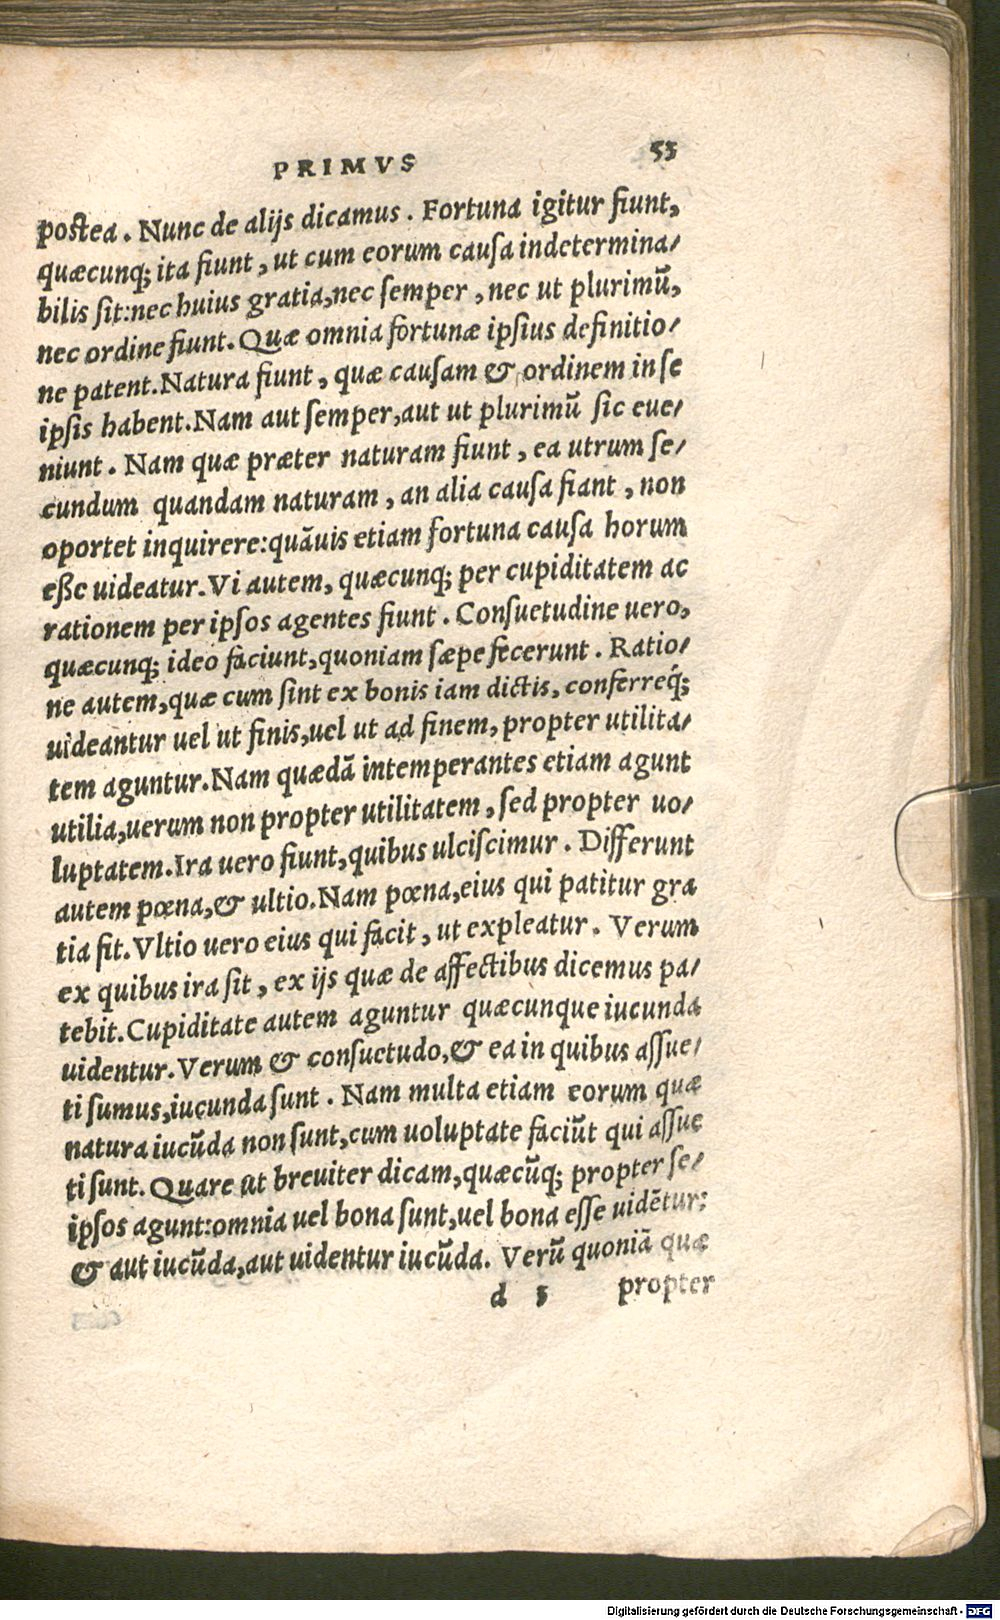 PRIMVS 55
postea. Nunc de alijs dicamus. Fortuna igitur fiunt,
quæcunq; ita fiunt, ut cum eorum causa indetermina/
bilis sit: nec huius gratia, nec semper, nec ut plurimū,
nec ordine fiunt. Quæ omnia fortunæ ipsius definitio/
ne patent. Natura fiunt, quæ causam & ordinem in se
ipsis habent. Nam aut semper, aut ut plurimū sic eue/
niunt. Nam quæ præter naturam fiunt, ea utrum se/
cundum quandam naturam, an alia causa fiant, non
oportet inquirere: quāuis etiam fortuna causa horum
eße uideatur. Vi autem, quæcunq; per cupiditatem ac
rationem per ipsos agentes fiunt. Consuetudine uero,
quæcunq; ideo faciunt, quoniam sæpe fecerunt. Ratio/
ne autem, quæ cum sint ex bonis iam dictis, conferreq́;
uideantur uel ut finis, uel ut ad finem, propter utilita/
tem aguntur. Nam quædā intemperantes etiam agunt
utilia, uerum non propter utilitatem, sed propter uo/
luptatem. Ira uero fiunt, quibus ulciscimur. Differunt
autem pœna, & ultio. Nam pœna, eius qui patitur gra
tia fit. Vltio uero eius qui facit, ut expleatur. Verum
ex quibus ira sit, ex ijs quæ de affectibus dicemus pa/
tebit. Cupiditate autem aguntur quæcunque iucunda
uidentur. Verum & consuetudo, & ea in quibus assue/
ti sumus, iucunda sunt. Nam multa etiam eorum quæ
natura iucūda non sunt, cum uoluptate faciūt qui assue
ti sunt. Quare ut breuiter dicam, quæcūq; propter se/
ipsos agunt: omnia uel bona sunt, uel bona esse uidētur:
& aut iucūda, aut uidentur iucūda. Verū quoniā quæ
d 3 propter
Digitalisierung gefördert durch die Deutsche Forschungsgemeinschaft - DFG